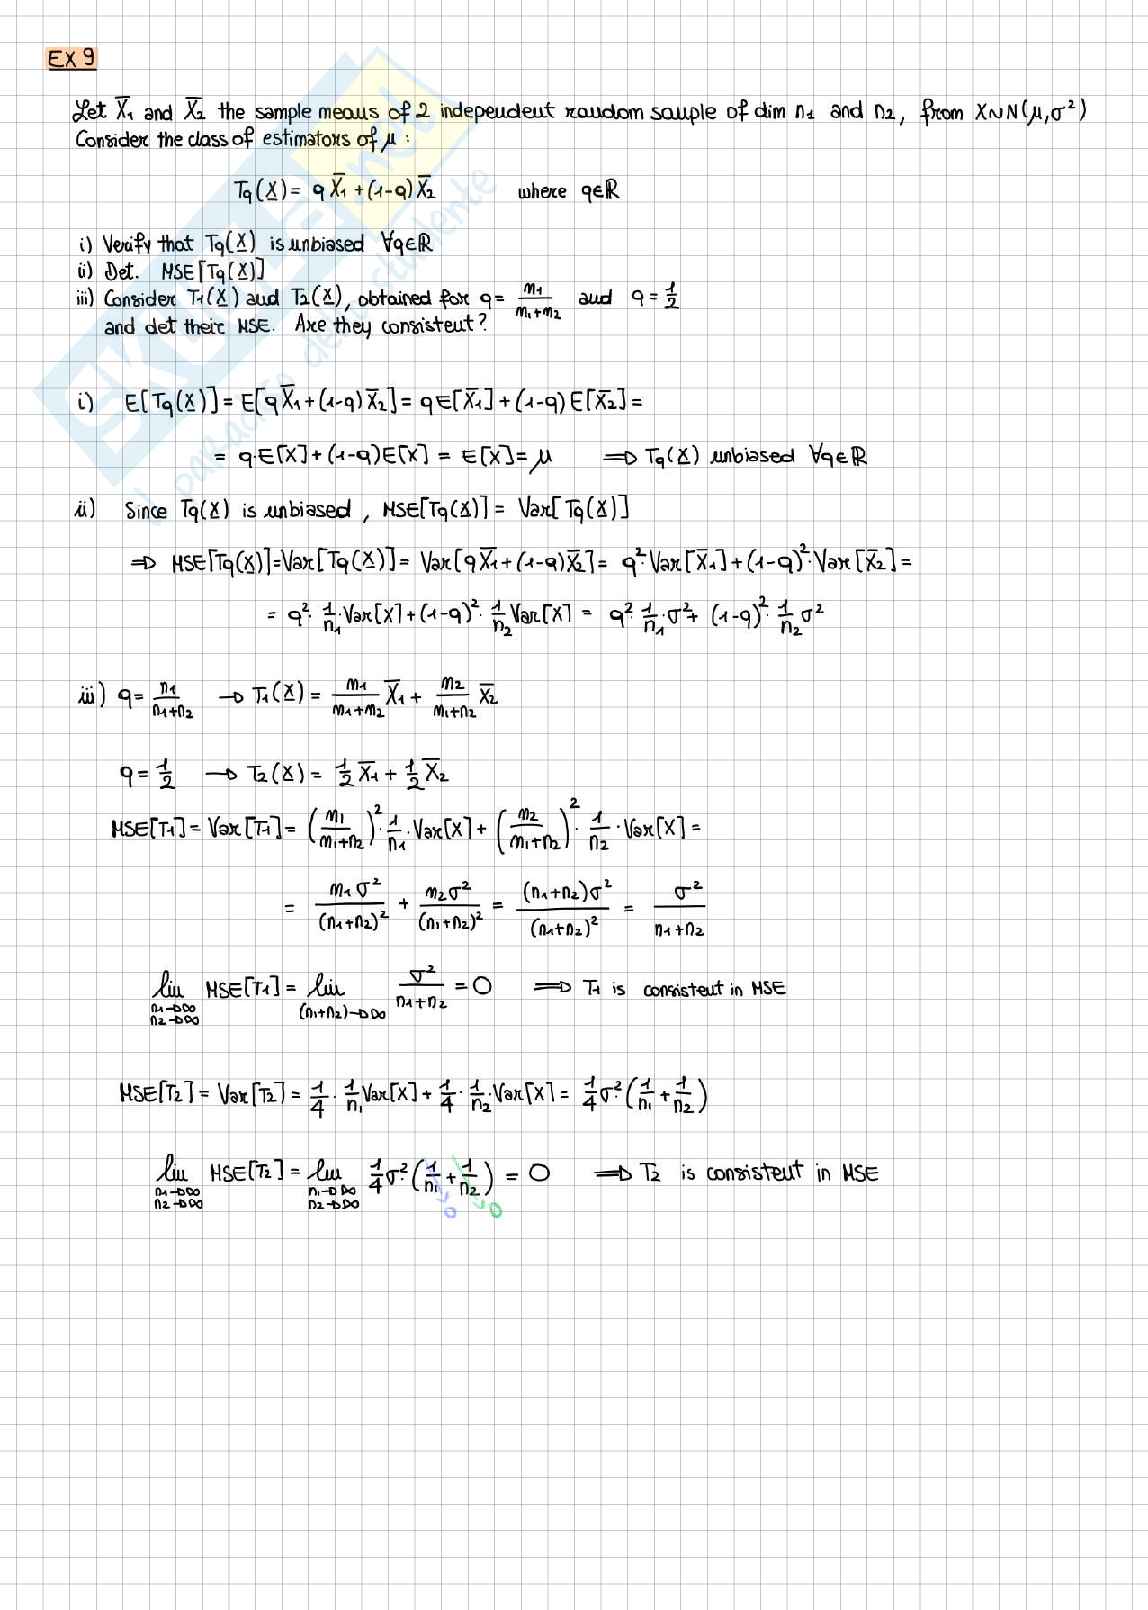 EX 9
Let X̅₁ and X̅₂ the sample means of 2 independent random sample of dim n₁ and n₂, from X∼N(μ,σ²)
Consider the class of estimators of μ :
Tq(X) = q X̅₁ + (1-q) X̅₂ where q∈ℝ
i) Verify that Tq(X) is unbiased ∀q∈ℝ
ii) Det. MSE[Tq(X)]
iii) Consider T₁(X) and T₂(X), obtained for q = n₁/(n₁+n₂) and q = 1/2
and det their MSE. Are they consistent?
i) E[Tq(X)] = E[q X̅₁ + (1-q) X̅₂] = q E[X̅₁] + (1-q) E[X̅₂] =
= q·E[X] + (1-q)E[X] = E[X] = μ ⇒ Tq(X) unbiased ∀q∈ℝ
ii) Since Tq(X) is unbiased, MSE[Tq(X)] = Var[Tq(X)]
⇒ MSE[Tq(X)] = Var[Tq(X)] = Var[q X̅₁ + (1-q) X̅₂] = q²·Var[X̅₁] + (1-q)²·Var[X̅₂] =
= q²· 1/n₁ ·Var[X] + (1-q)²· 1/n₂ Var[X] = q² 1/n₁ ·σ² + (1-q)²· 1/n₂ σ²
iii) q = n₁/(n₁+n₂) → T₁(X) = n₁/(n₁+n₂) X̅₁ + n₂/(n₁+n₂) X̅₂
q = 1/2 → T₂(X) = 1/2 X̅₁ + 1/2 X̅₂
MSE[T₁] = Var[T₁] = (n₁/(n₁+n₂))² · 1/n₁ · Var[X] + (n₂/(n₁+n₂))² · 1/n₂ · Var[X] =
= n₁σ²/(n₁+n₂)² + n₂σ²/(n₁+n₂)² = (n₁+n₂)σ²/(n₁+n₂)² = σ²/(n₁+n₂)
lim n₁→∞ n₂→∞ MSE[T₁] = lim (n₁+n₂)→∞ σ²/(n₁+n₂) = 0 ⇒ T₁ is consistent in MSE
MSE[T₂] = Var[T₂] = 1/4 · 1/n₁ Var[X] + 1/4 · 1/n₂ · Var[X] = 1/4 σ² (1/n₁ + 1/n₂)
lim n₁→∞ n₂→∞ MSE[T₂] = lim n₁→∞ n₂→∞ 1/4 σ² (1/n₁ + 1/n₂) = 0 ⇒ T₂ is consistent in MSE
0 0